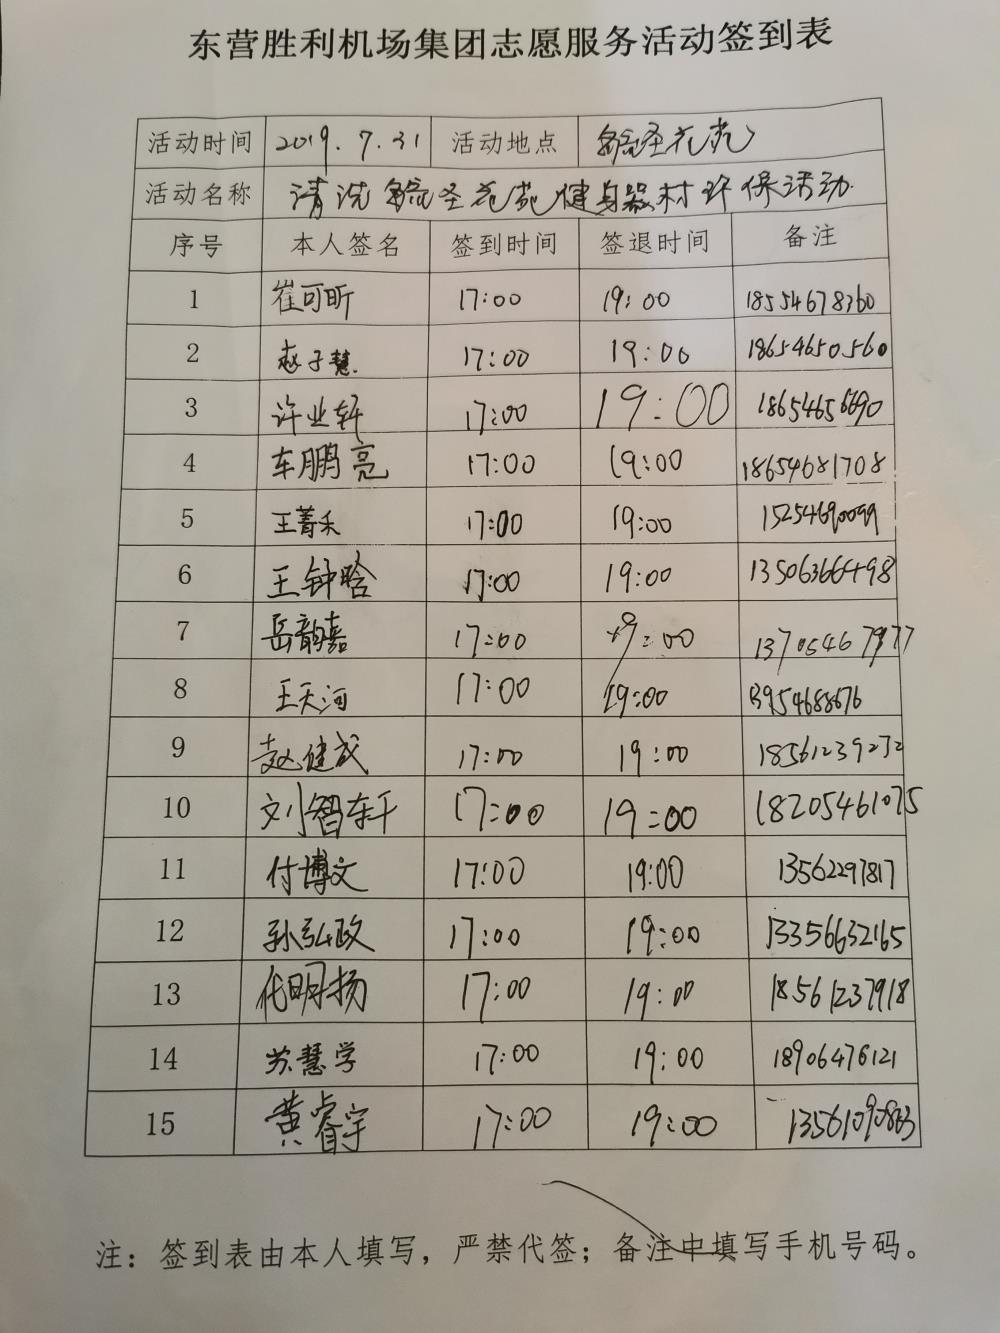 东营胜利机场集团志愿服务活动签到表
活动时间 2019.7.31 活动地点 圣花苑
活动名称 清洗 圣花苑健身器材环保活动
序号 本人签名 签到时间 签退时间 备注
1 崔可昕 17:00 19:00 18554678360
2 赵子慧 17:00 19:00 18654650560
3 许业轩 17:00 19:00 18654656690
4 车鹏亮 17:00 19:00 18654681708
5 王菁禾 17:00 19:00 15254690099
6 王钟晗 17:00 19:00 13506366498
7 岳韵嘉 17:00 19:00 13705467977
8 王天河 17:00 19:00 13954688676
9 赵健成 17:00 19:00 18561239232
10 刘智轩 17:00 19:00 18205461075
11 付博文 17:00 19:00 13562297817
12 孙弘政 17:00 19:00 13356632165
13 代明扬 17:00 19:00 18561237918
14 苏慧学 17:00 19:00 18906476121
15 黄睿宇 17:00 19:00
注：签到表由本人填写，严禁代签；备注中填写手机号码。